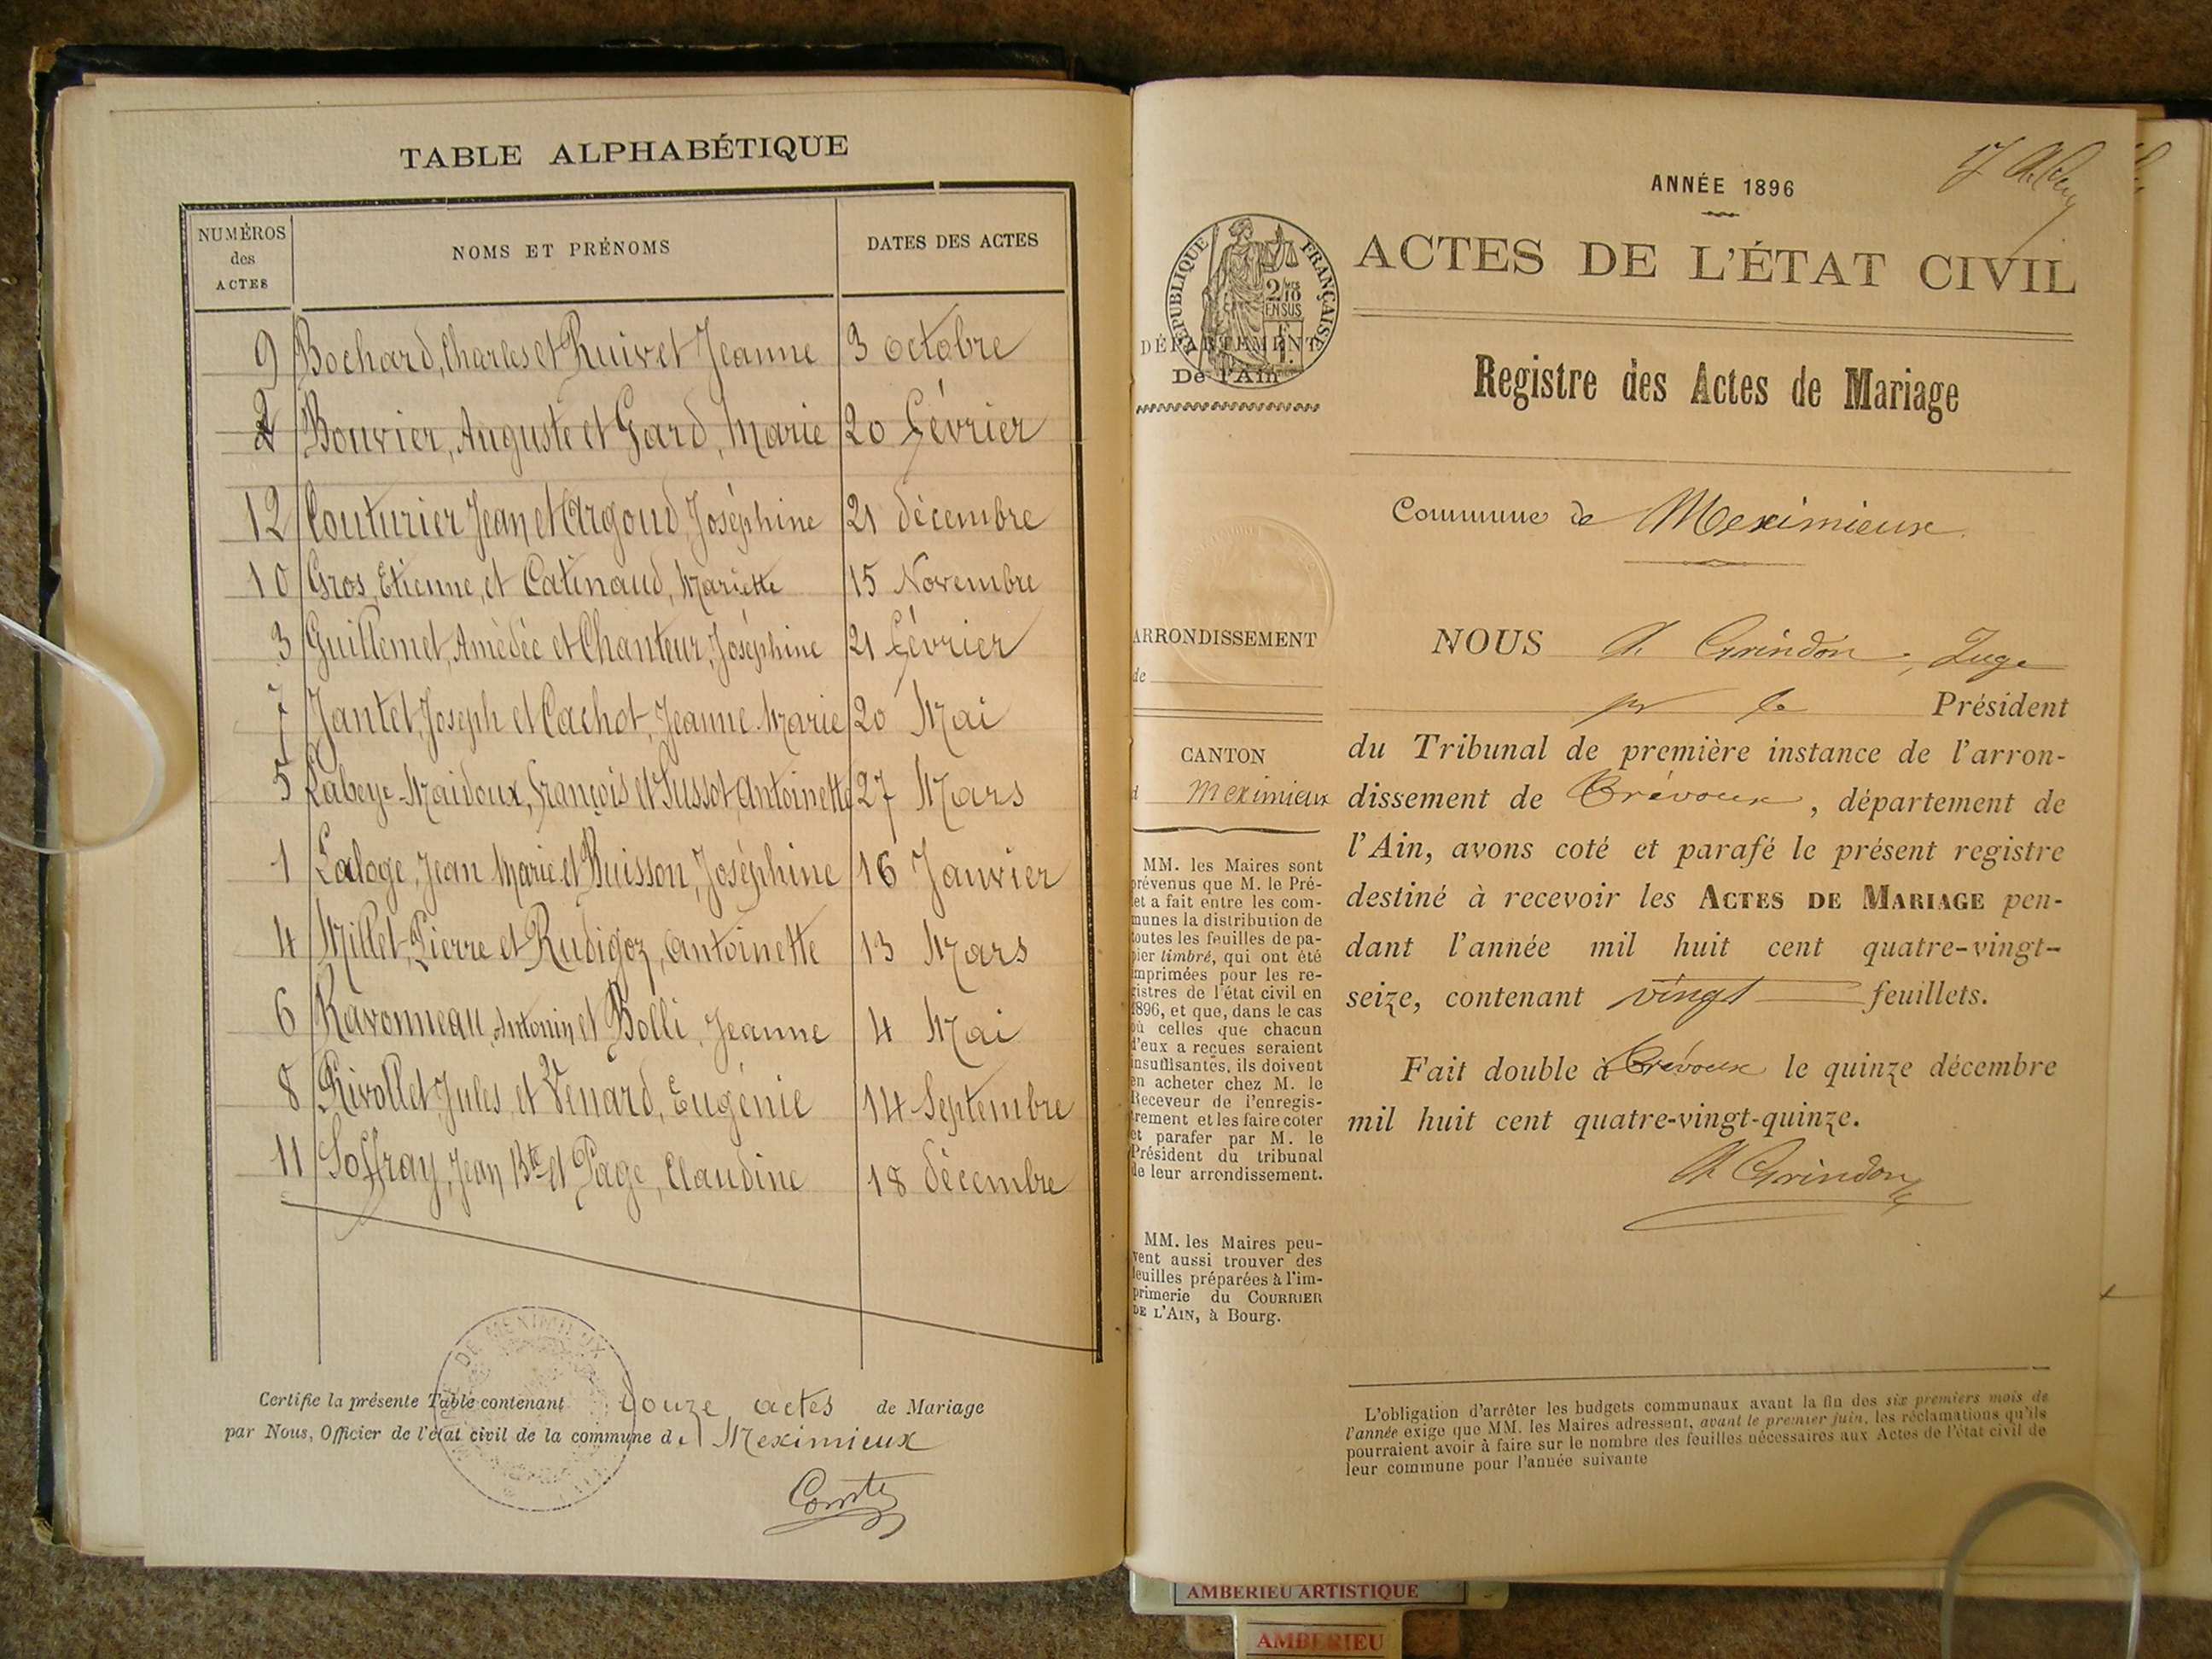 TABLE ALPHABÉTIQUE
NUMÉROS des ACTES
NOMS ET PRÉNOMS
DATES DES ACTES
9 Bochard, Charles et Ruivet Jeanne 3 octobre
2 Bouvier, Auguste et Gard, Marie 20 Février
12 Couturier Jean et Argoud Joséphine 21 décembre
10 Gros, Etienne, et Catinaud, Mariette 15 Novembre
3 Guillemet, Amèdée et Chanteur, Joséphine 21 Février
7 Jantet, Joseph et Cachot, Jeanne Marie 20 Mai
5 Labeye-Maidoux, François et Sussot, Antoinette 27 Mars
1 Laloge, Jean Marie et Buisson, Joséphine 16 Janvier
4 Millet, Pierre et Rudigoz, Antoinette 13 Mars
6 Ravonneau, Antonin et Bolli, Jeanne 4 Mai
8 Rivollet, Jules et Venard, Eugénie 14 Septembre
11 Soffray, Jean Bte et Page, Claudine 18 décembre
DE MEXIMIEUX
Certifie la présente Table contenant douze actes de Mariage
par Nous, Officier de l'état civil de la commune de Meximieux
ANNÉE 1896
ACTES DE L'ÉTAT CIVIL
RÉPUBLIQUE FRANÇAISE
2/10 EN SUS
DÉPARTEMENT
De l'Ain
Registre des Actes de Mariage
Commune de Meximieux
ARRONDISSEMENT
de
CANTON
Meximieux
MM. les Maires sont
prévenus que M. le Pré-
et a fait entre les com-
munes la distribution de
toutes les feuilles de pa-
pier timbré, qui ont été
imprimées pour les re-
gistres de l'état civil en
1896, et que, dans le cas
où celles que chacun
d'eux a reçues seraient
insuffisantes, ils doivent
en acheter chez M. le
Receveur de l'enregis-
trement et les faire coter
et parafer par M. le
Président du tribunal
de leur arrondissement.
MM. les Maires peu-
vent aussi trouver des
feuilles préparées à l'im-
primerie du COURRIER
DE L'AIN, à Bourg.
NOUS A. Grindon, Juge
pr le Président
du Tribunal de première instance de l'arron-
dissement de Trévoux, département de
l'Ain, avons coté et parafé le présent registre
destiné à recevoir les ACTES DE MARIAGE pen-
dant l'année mil huit cent quatre-vingt-
seize, contenant vingt feuillets.
Fait double à Trévoux le quinze décembre
mil huit cent quatre-vingt-quinze.
A Grindon
L'obligation d'arrêter les budgets communaux avant la fin des six premiers mois de
l'année exige que MM. les Maires adressent, avant le premier juin, les réclamations qu'ils
pourraient avoir à faire sur le nombre des feuilles nécessaires aux Actes de l'état civil de
leur commune pour l'année suivante
AMBERIEU ARTISTIQUE
AMBERIEU